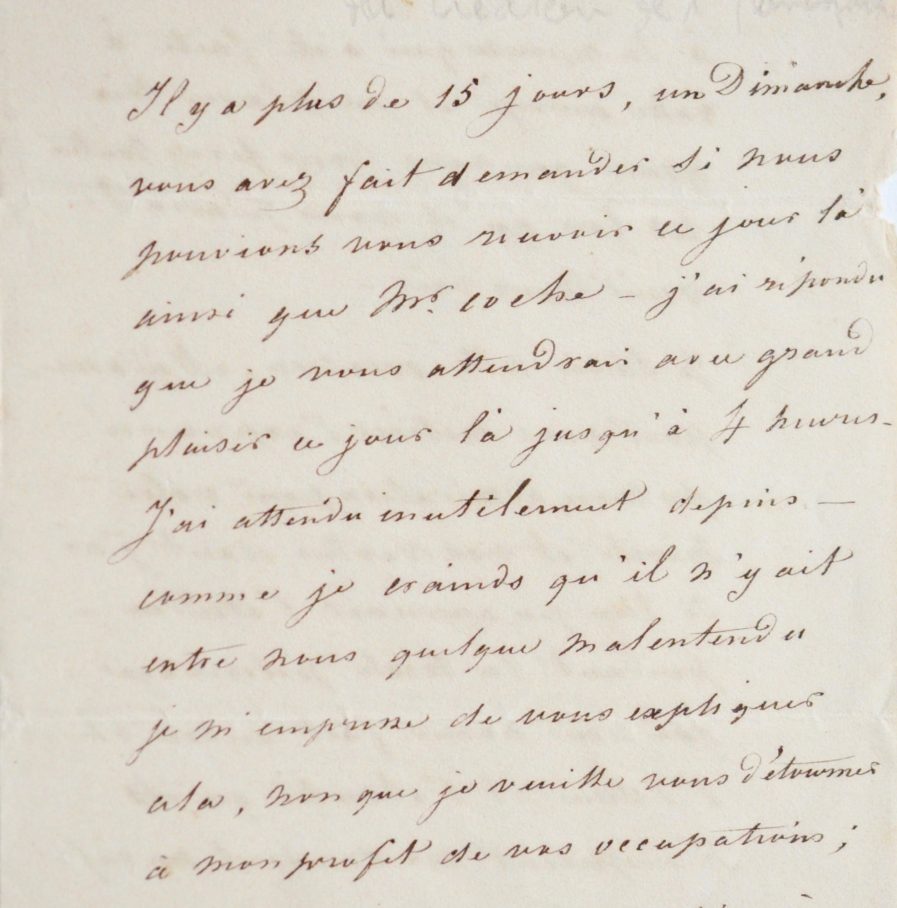 Il y a plus de 15 jours, un Dimanche,
vous avez fait demander si nous
pouvions vous recevoir ce jour là
ainsi que Mr. coche – j'ai répondu
que je vous attendrais avec grand
plaisir ce jour là jusqu'à 4 heures –
J'ai attendu inutilement depuis –
comme je crainds qu'il n'y ait
entre nous quelque malentendu
je m'empresse de vous expliquer
cela, non que je veuille vous détourner
à mon profit de vos occupations ;